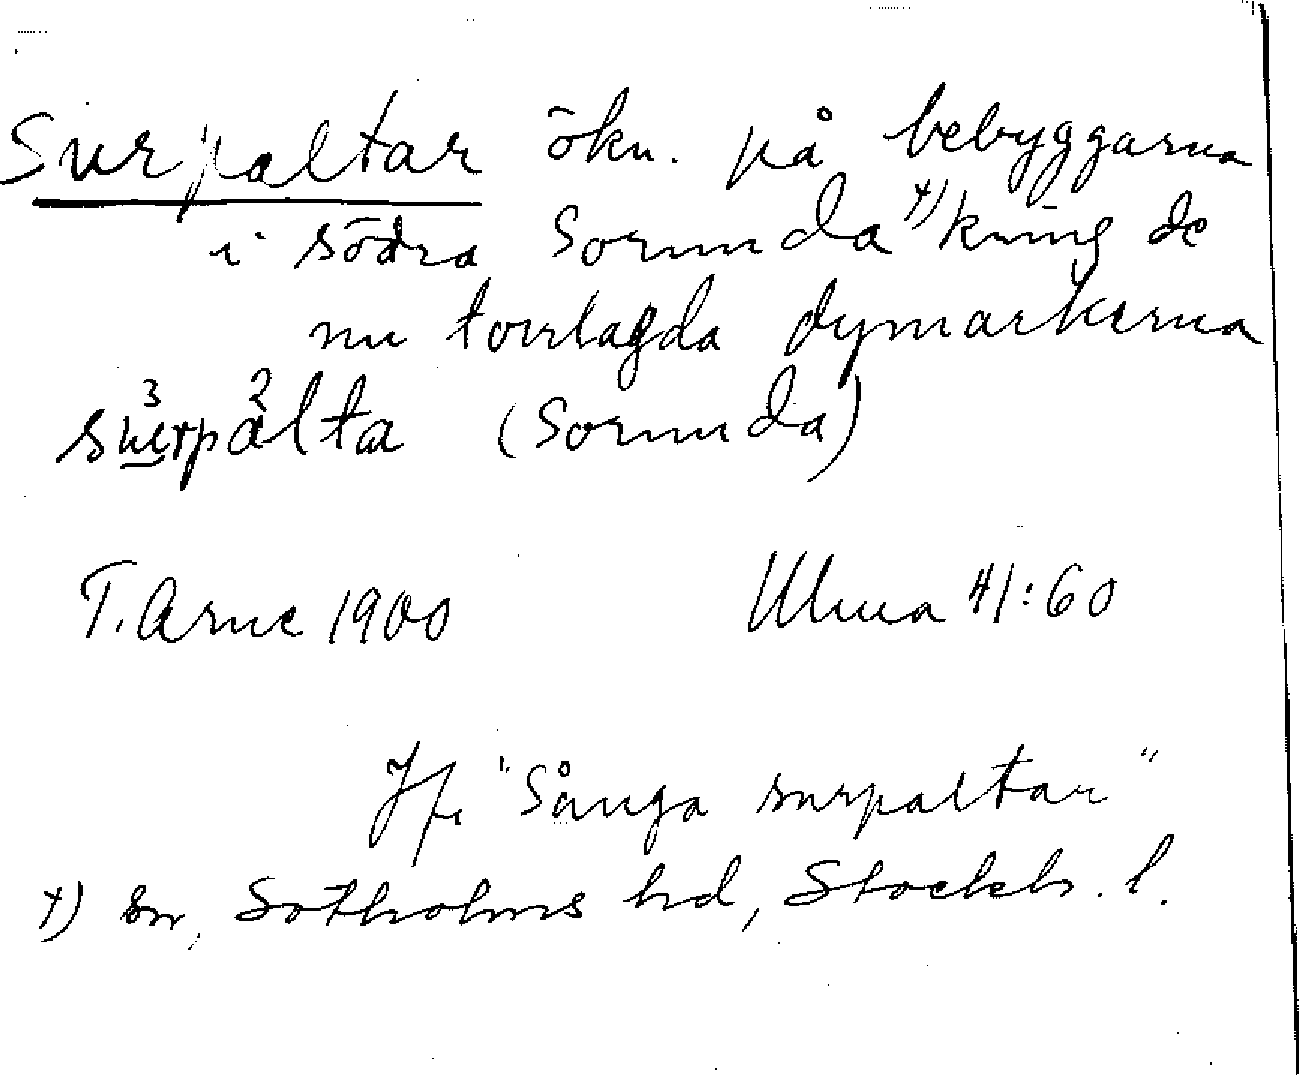 Surpaltar ökn. på bebyggarna
i södra Sorunda +) kring de
nu torrlagda dymarkerna
(Sorunda)
T. Arne 1900 Ulma 41:60
Jfr "Sånga surpaltar"
+) sn, Sotholms hd, Stockh. l.